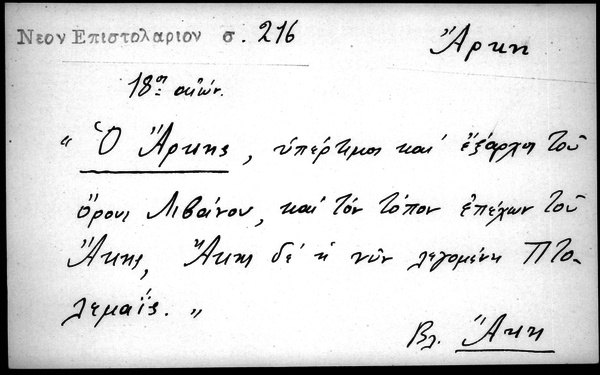 Νεον Επιστολαριον σ. 216
Ἄρκη
18ος αἰών.
" Ὁ Ἄρκης, ὑπέρτιμος καὶ ἔξαρχος τοῦ
ὄρους Λιβάνου, καὶ τὸν τόπον ἐπέχων τοῦ
Ἄκης, Ἄκης δὲ ἡ νῦν λεγομένη Πτο-
λεμαΐς. "
Βλ. Ἄκη